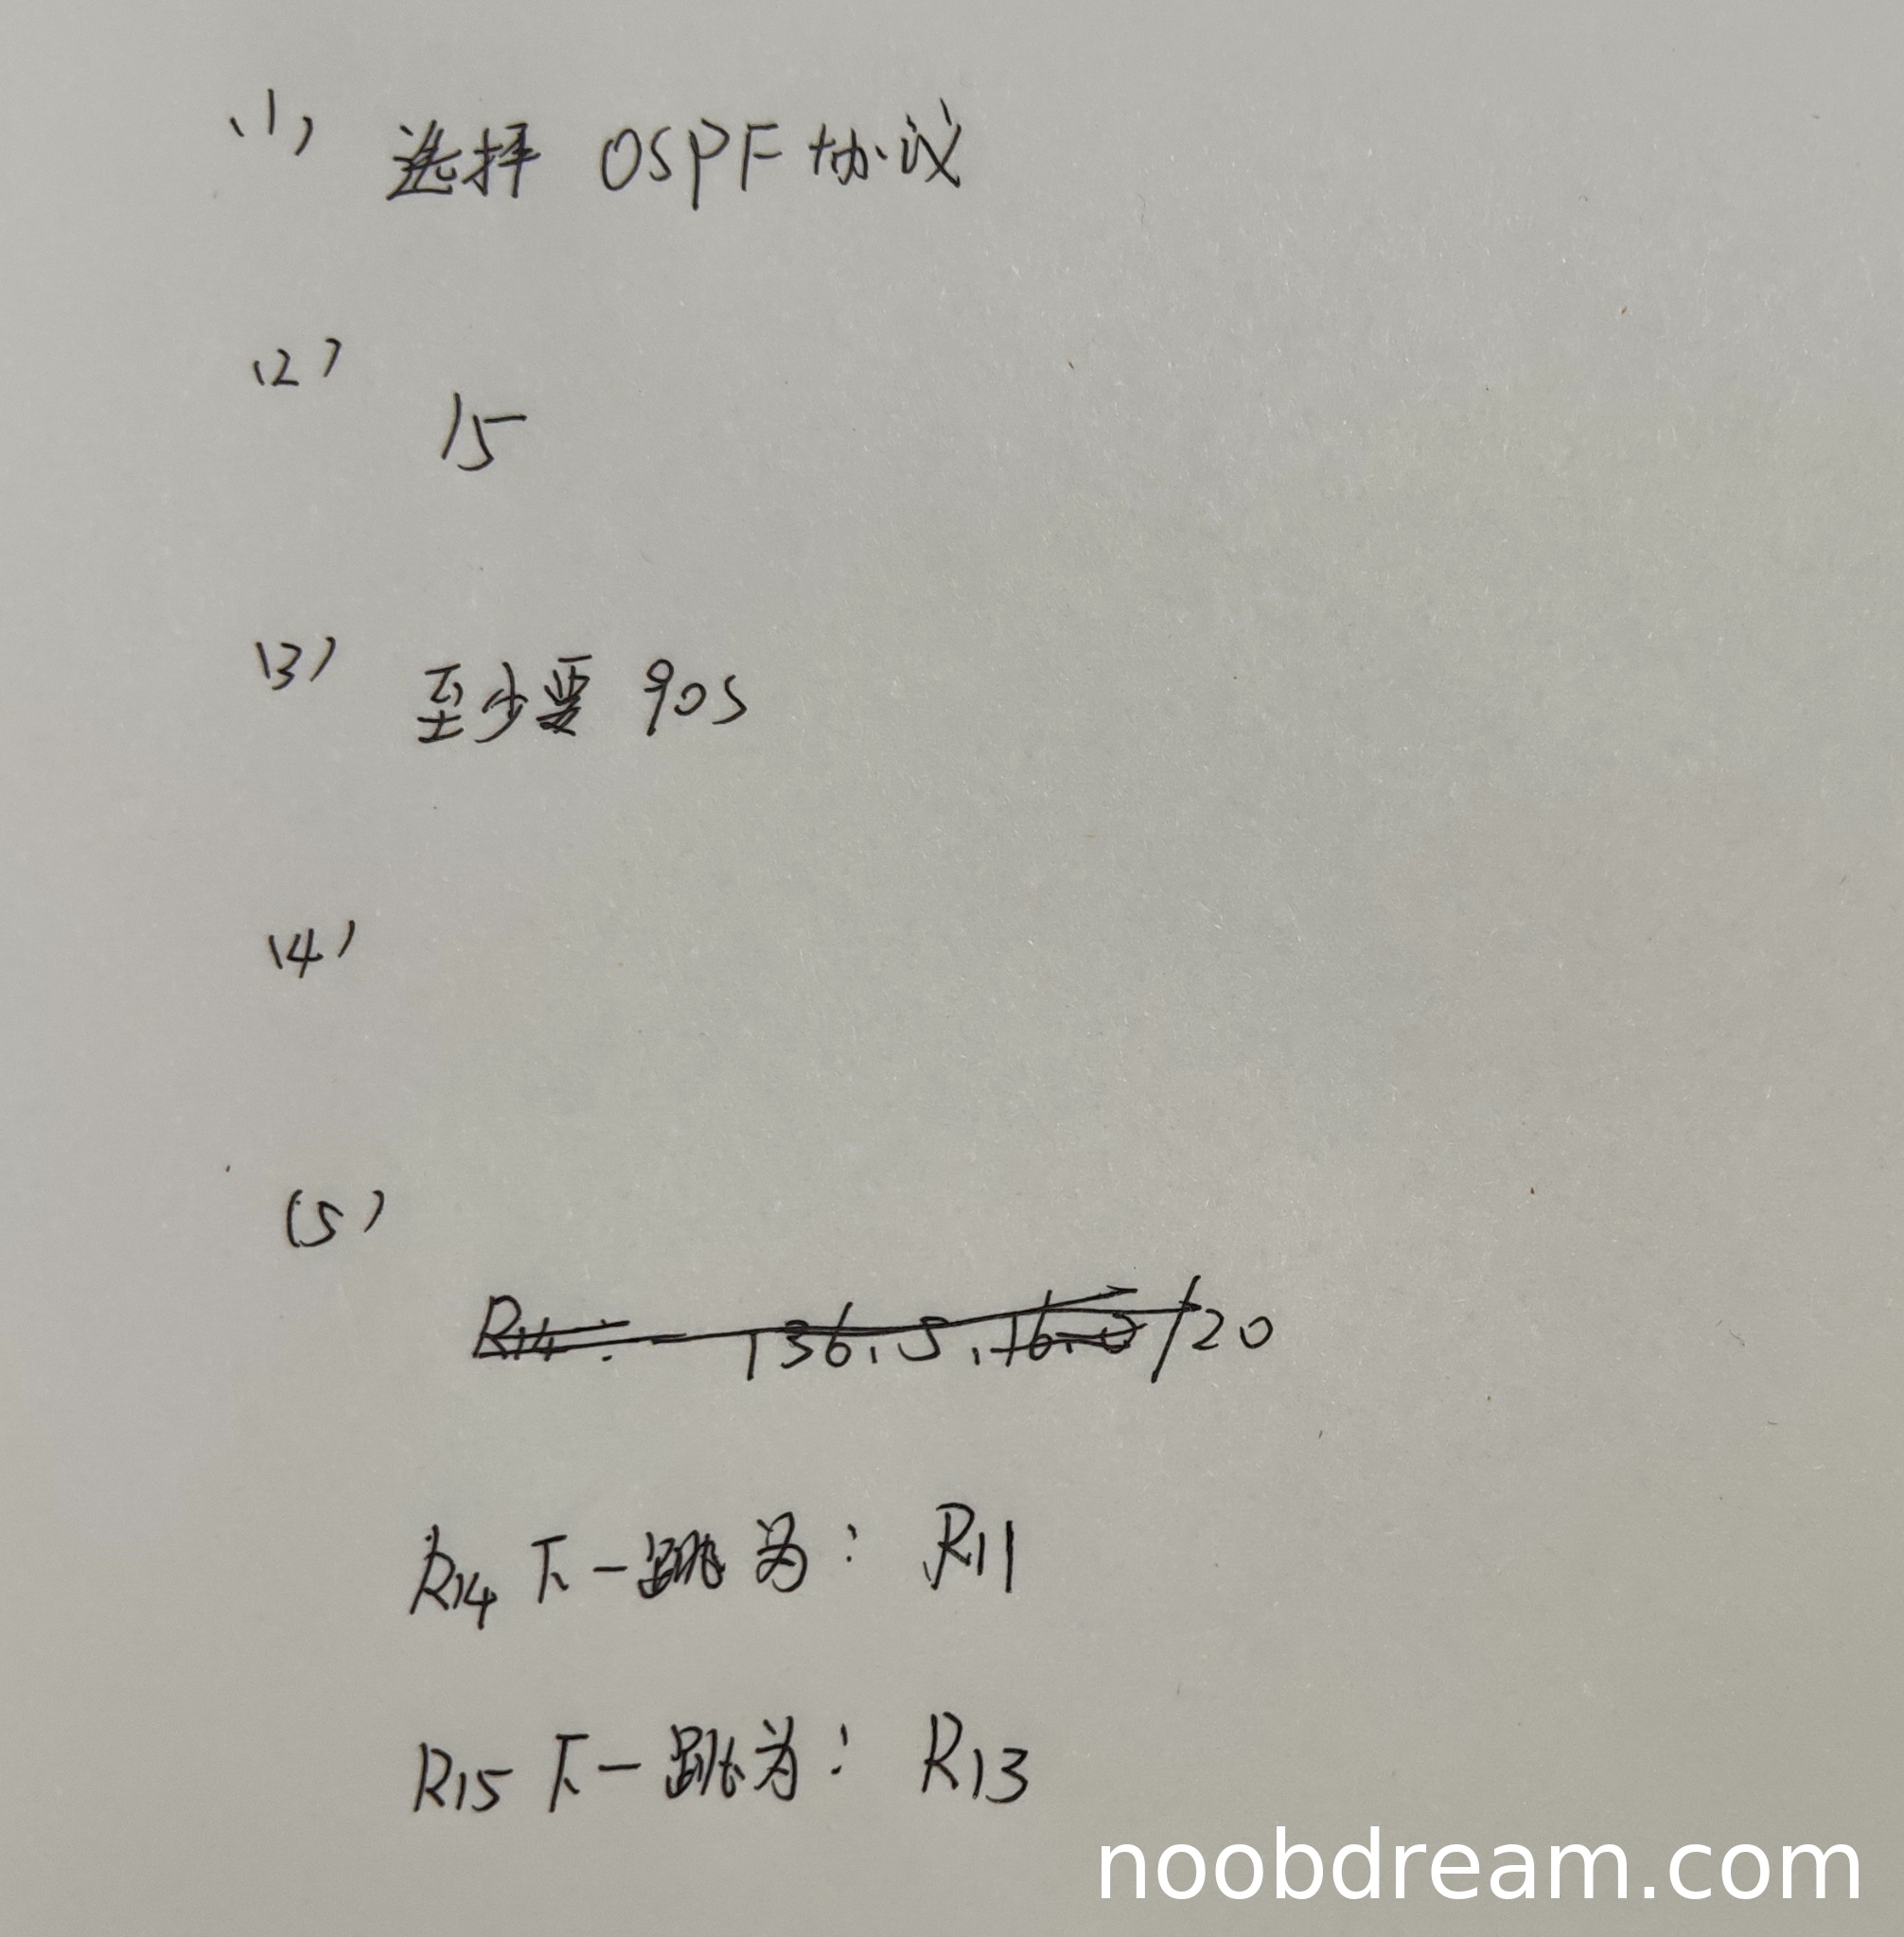 (1) 选择 OSPF 协议
(2)
15
(3) 至少要 90s
(4)
(5)
R14: — 136.5.16.0/20
R14 下一跳为: R11
R15 下一跳为: R13
noobdream.com